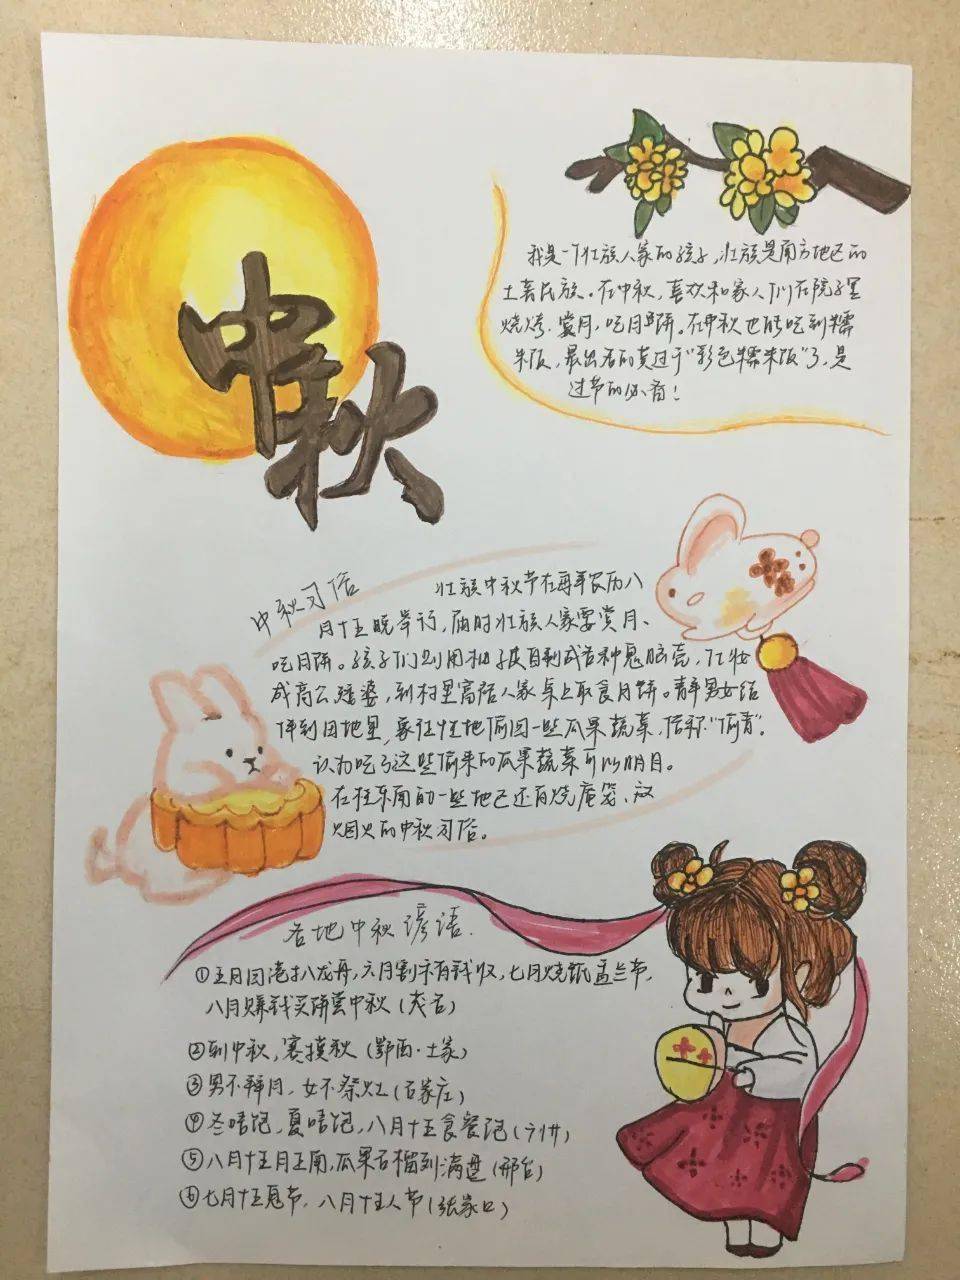 中秋
我是一个壮族人家的孩子,壮族是南方地区的
土著民族。在中秋,喜欢和家人们在院子里
烧烤、赏月,吃月饼。在中秋也能吃到糯
米饭,最出名的莫过于“彩色糯米饭”了,是
过节的必备!
中秋习俗
壮族中秋节在每年农历八
月十五晚举行,届时壮族人家要赏月、
吃月饼。孩子们则用柚子皮自制成各种鬼脸壳,化妆
成高公矮婆,到村里富陌人家桌上取食月饼。青年男女结
伴到田地里,象征性地偷回一些瓜果蔬菜,俗称“偷青”。
认为吃了这些偷来的瓜果蔬菜可以明目。
在桂东南的一些地区还有烧庵笼、放
烟火的中秋习俗。
各地中秋谚语.
①五月田港扒龙舟,六月割禾有钱收,七月烧纸盂兰节,
八月赚钱买饼赏中秋(茂名)
②到中秋,赛摸秋(鄂西·土家)
③男不拜月,女不祭灶(石家庄)
④冬唔饱,夏唔饱,八月十五食餐饱(广州)
⑤八月十五月正南,瓜果石榴列满盘(邢台)
⑥七月十五鬼节,八月十五人节(张家口)